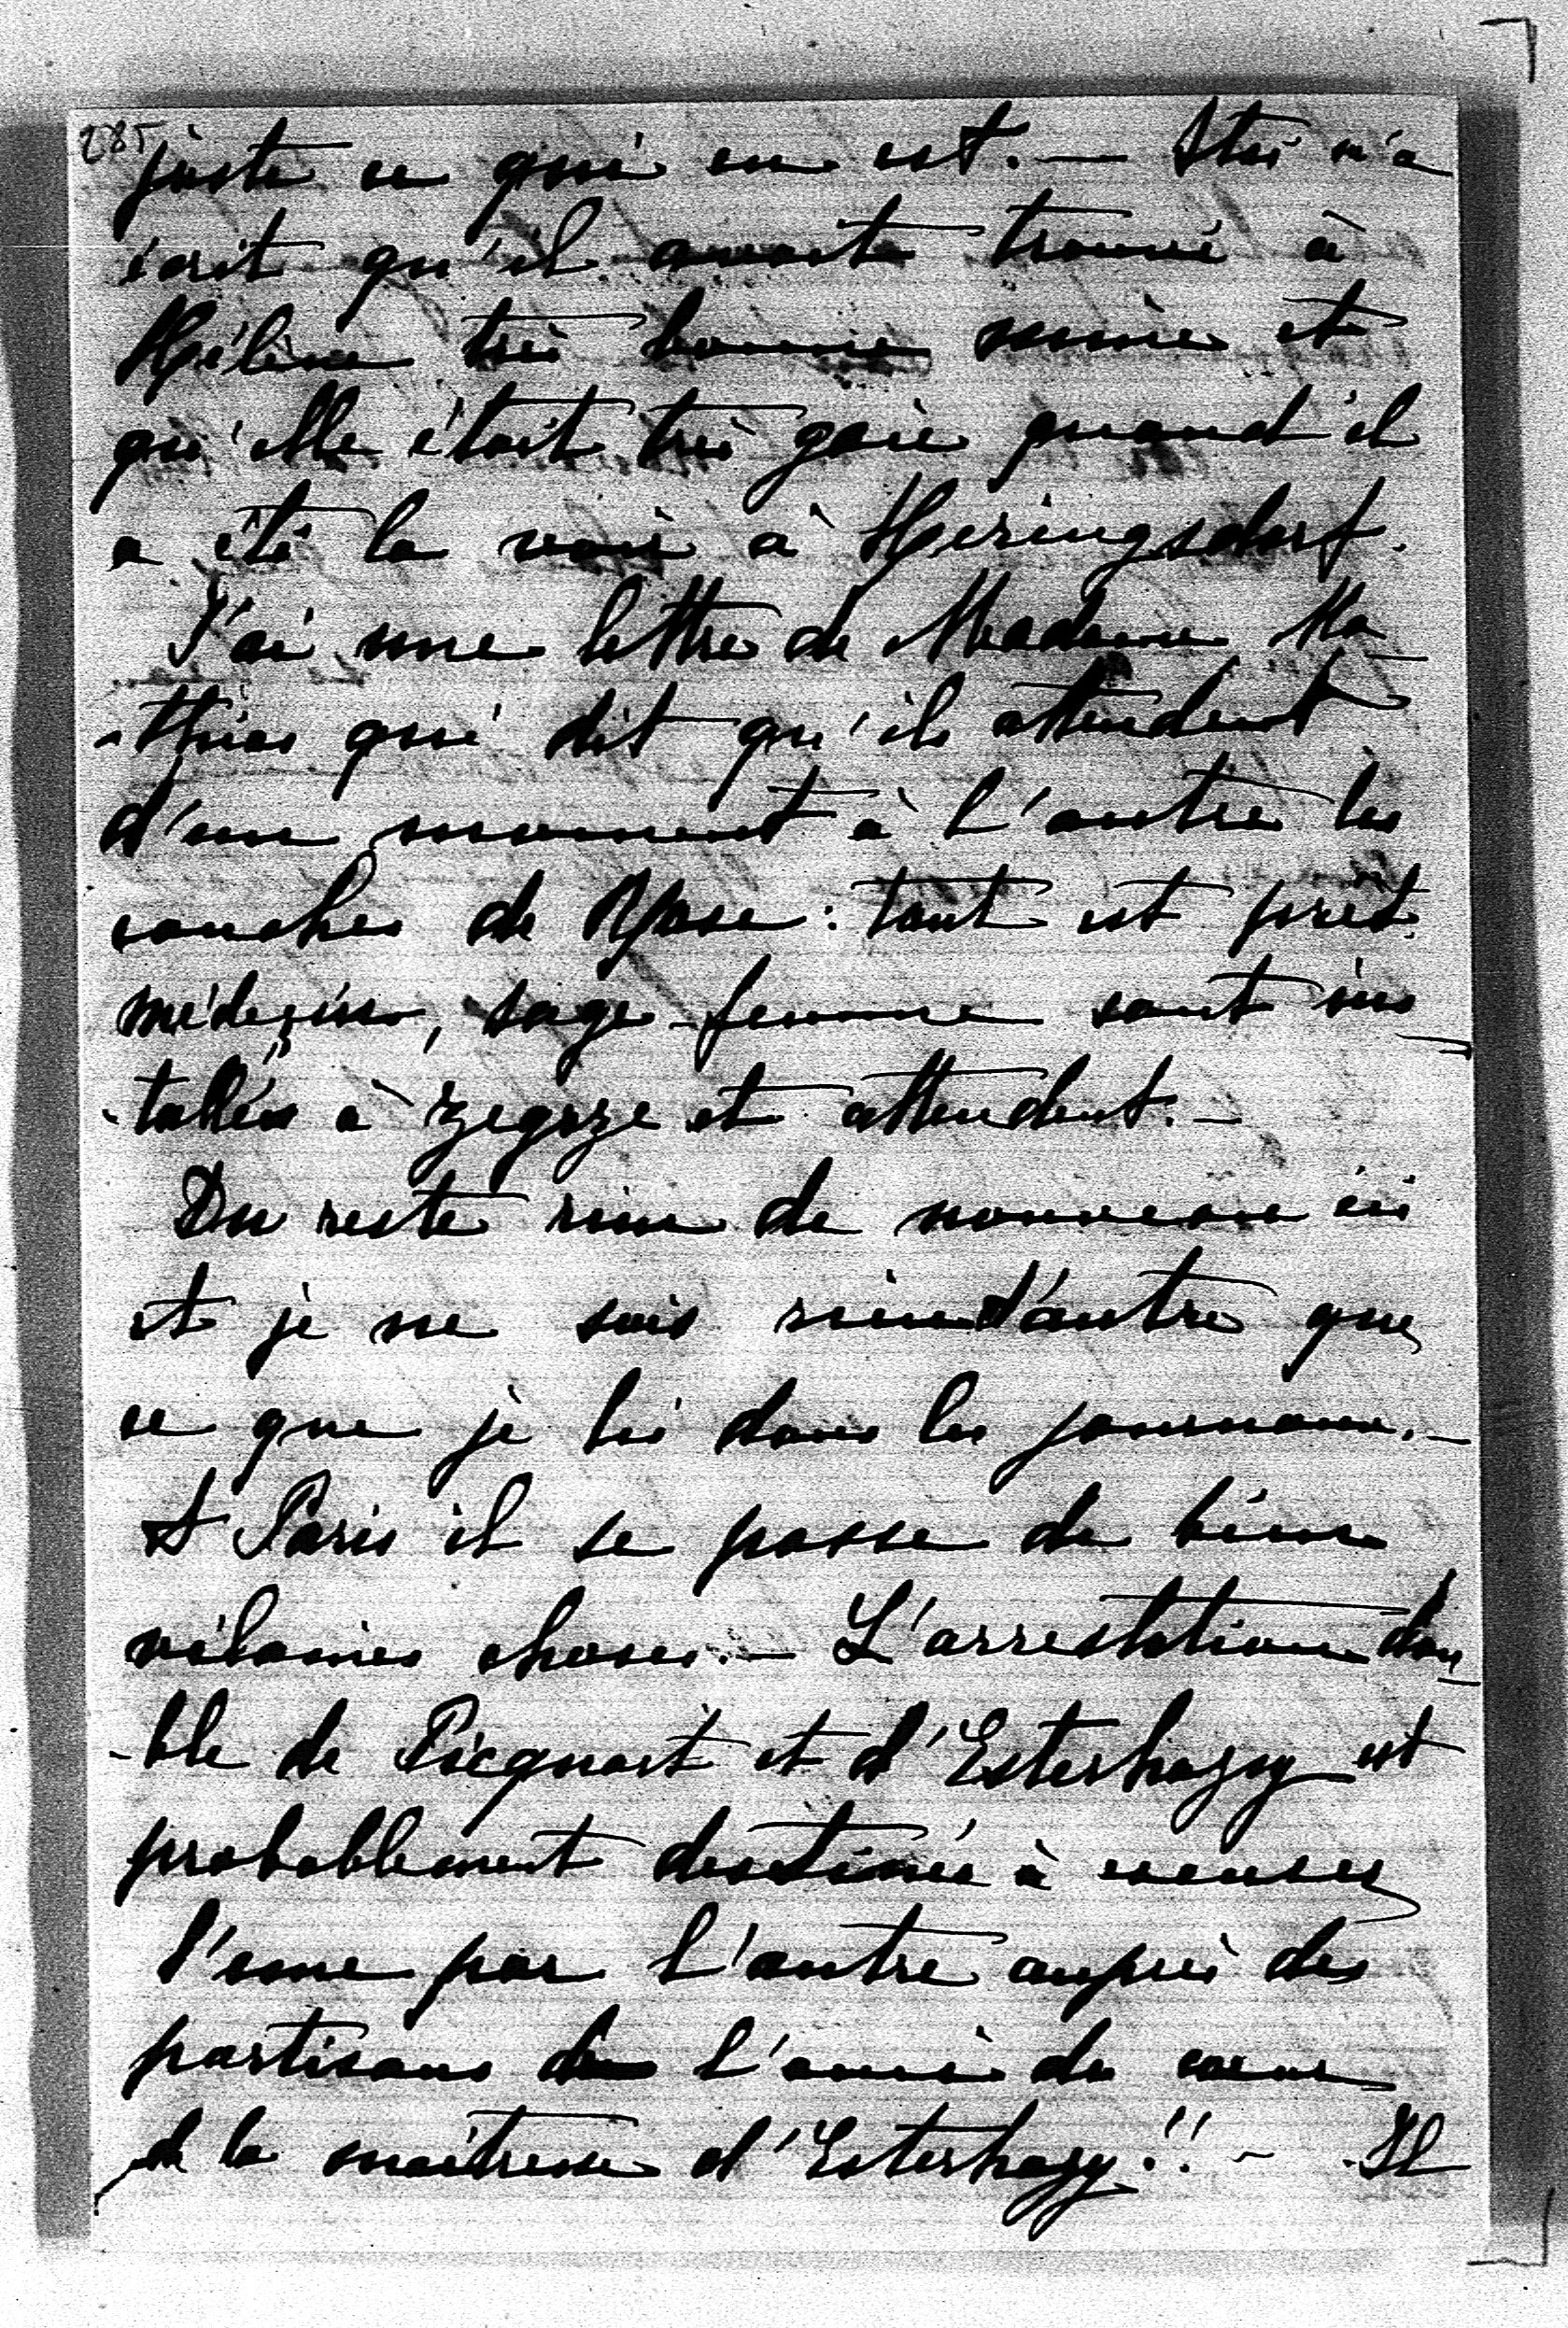 285
juste ce qui en est. — Stas m'a
écrit qu'il avait trouvé à
Hélène très bonne mine et
qu'elle était très gaie quand il
a été la voir à Heringsdorf.
J'ai une lettre de Madame Ma-
-thias qui dit qu'ils attendent
d'un moment à l'autre les
couches de Rose : tout est prêt
médecin, sage-femme sont ins-
-tallés à Zegrze et attendent. —
Du reste rien de nouveau ici
et je ne sais rien d'autre que
ce que je lis dans les journaux. —
A Paris il se passe de bien
vilaines choses. — L'arrestation dou-
-ble de Picquart et d'Esterhazy est
probablement destinée à excuser
l'une par l'autre auprès des
partisans de l'ami du cœur
de la maîtresse d'Esterhazy !! — Il